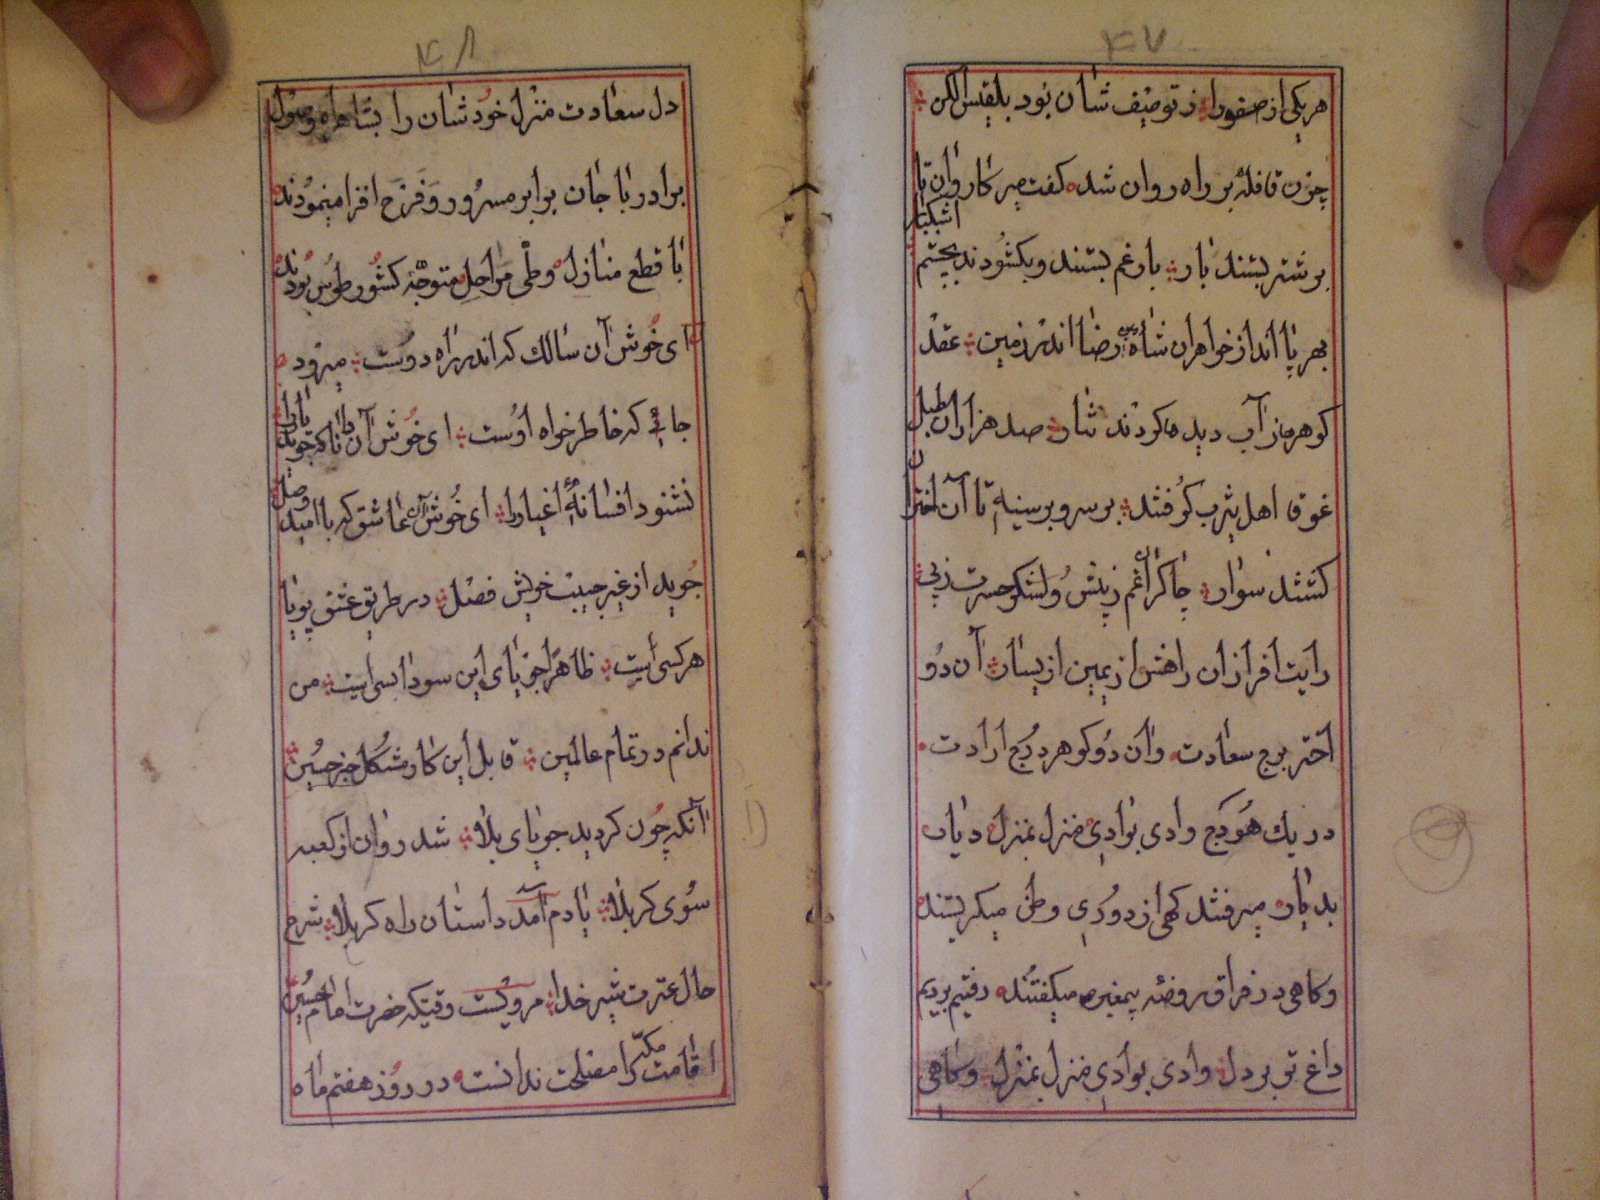 ۴۷
هر یکی از صفورا ز توصیف شان بود بلقیس الکن
چون قافله بر راه روان شد گفت میر کاروان تا
اشکبار
بر شتر بستند بار بار غم بستند و بکشودند چشم
بهر پا انداز خواهران شاه دین رضا اندر زمین عقد
کوهرها ز آب دیده کردند نثار صد هزاران طبل
غوقا اهل یثرب کوفتند بر سر و بر سینه تا آن اختران
کشتند سوار چاکران غم ز پیش و لشکر حسرت ز پی
رایت افرازان راهش از یمین از یسار آن دو
اختر برج سعادت وان دو کوهر درج ارادت
در یک هودج وادی بوادی منزل بمنزل دیار
بدیار میرفتند کهی از دوری وطن میکریستند
و کاهی در فراق روضه پیمغبر میکفتند رفتیم بردیم
داغ تو بر دل وادی بوادی منزل بمنزل و کاهی
۴۸
دل سعادت منزل خود شان را بشاهراه وصول
برادر با جان برابر مسرور و فرح افزا مینمودند
با قطع منازل و طی مراحل متوجه کشور طوس بودند
ای خوش آن سالک که اندر راه دوست میرود
جائی که خاطر خواه اوست ای خوش آن دانا که جوید یار را
نشنود افسانه اغیار را ای خوش آن عاشق که با امید وصل
جوید از غیر حبیب خویش فصل در طریق عشق پویا
هر کسی است ظاهرا جویای این سودا بسی است من
ندانم در تمام عالمین قابل این کار مشکل جز حسین
آنکه چون کردید جویای بلا شد روان از کعبه
سوی کربلا یادم آمد داستان راه کربلا شرح
حال عترت شیر خدا مرویست وقتیکه حضرت امام حسین
اقامت مکه را مصلحت ندانست در روز هفتم ماه